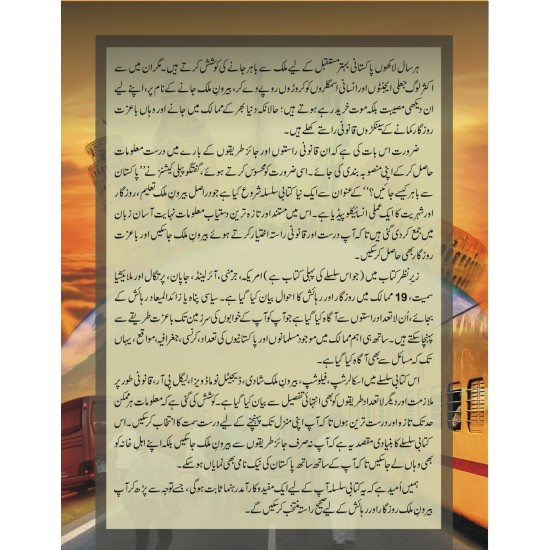 ہر سال لاکھوں پاکستانی بہتر مستقبل کے لیے ملک سے باہر جانے کی کوشش کرتے ہیں۔ مگر ان میں سے
اکثر لوگ جعلی ایجنٹوں اور انسانی اسمگلروں کو کروڑوں روپے دے کر، بیرونِ ملک جانے کے نام پر، اپنے لیے
ان دیکھی مصیبت بلکہ موت خرید رہے ہوتے ہیں؛ حالانکہ دنیا بھر کے ممالک میں جانے اور وہاں باعزت
روزگار کمانے کے سینکڑوں قانونی راستے کھلے ہیں۔
ضرورت اس بات کی ہے کہ ان قانونی راستوں اور جائز طریقوں کے بارے میں درست معلومات
حاصل کر کے اپنی منصوبہ بندی کی جائے۔ اسی ضرورت کو محسوس کرتے ہوئے، گفتگو پبلی کیشنز نے ’’پاکستان
سے باہر کیسے جائیں؟‘‘ کے عنوان سے ایک نیا کتابی سلسلہ شروع کیا ہے جو دراصل بیرونِ ملک تعلیم، روزگار
اور شہریت کا ایک عملی انسائیکلو پیڈیا ہے۔ اس میں مستند اور تازہ ترین دستیاب معلومات نہایت آسان زبان
میں جمع کر دی گئی ہیں تاکہ آپ درست اور قانونی راستہ اختیار کرتے ہوئے بیرونِ ملک جا سکیں اور باعزت
روزگار بھی حاصل کر سکیں۔
زیرِ نظر کتاب میں (جو اس سلسلے کی پہلی کتاب ہے) امریکہ، جرمنی، آئرلینڈ، جاپان، پرتگال اور ملائیشیا
سمیت، 19 ممالک میں روزگار اور رہائش کا احوال بیان کیا گیا ہے۔ سیاسی پناہ یا زائد المیعاد رہائش کے
بجائے، اُن لاتعداد راستوں سے آگاہ کیا گیا ہے جو آپ کو آپ کے خوابوں کی سرزمین تک باعزت طریقے سے
پہنچا سکتے ہیں۔ ساتھ ہی اہم ممالک میں موجود مسلمانوں اور پاکستانیوں کی تعداد، کرنسی، جغرافیہ، مواقع، یہاں
تک کہ مسائل سے بھی آگاہ کیا گیا ہے۔
اس کتابی سلسلے میں اسکالرشپ، فیلوشپ، بیرونِ ملک شادی، ڈیجیٹل نوماڈ ویزا، لیگل پی آر، قانونی طور پر
ملازمت اور دیگر لاتعداد طریقوں کو بھی انتہائی تفصیل سے بیان کیا گیا ہے۔ کوشش کی گئی ہے کہ معلومات ہر ممکن
حد تک تازہ اور درست ترین ہوں تاکہ آپ اپنی منزل تک پہنچنے کے لیے درست سمت کا انتخاب کر سکیں۔ اس
کتابی سلسلے کا بنیادی مقصد یہ ہے کہ آپ نہ صرف جائز طریقوں سے بیرونِ ملک جا سکیں بلکہ اپنے اہلِ خانہ کو
بھی وہاں لے جا سکیں تاکہ آپ کے ساتھ ساتھ پاکستان کی نیک نامی بھی نمایاں ہو سکے۔
ہمیں اُمید ہے کہ یہ کتابی سلسلہ آپ کے لیے ایک مفید و کارآمد رہنما ثابت ہو گی، جسے توجہ سے پڑھ کر آپ
بیرونِ ملک روزگار اور رہائش کے لیے صحیح راستہ منتخب کر سکیں گے۔